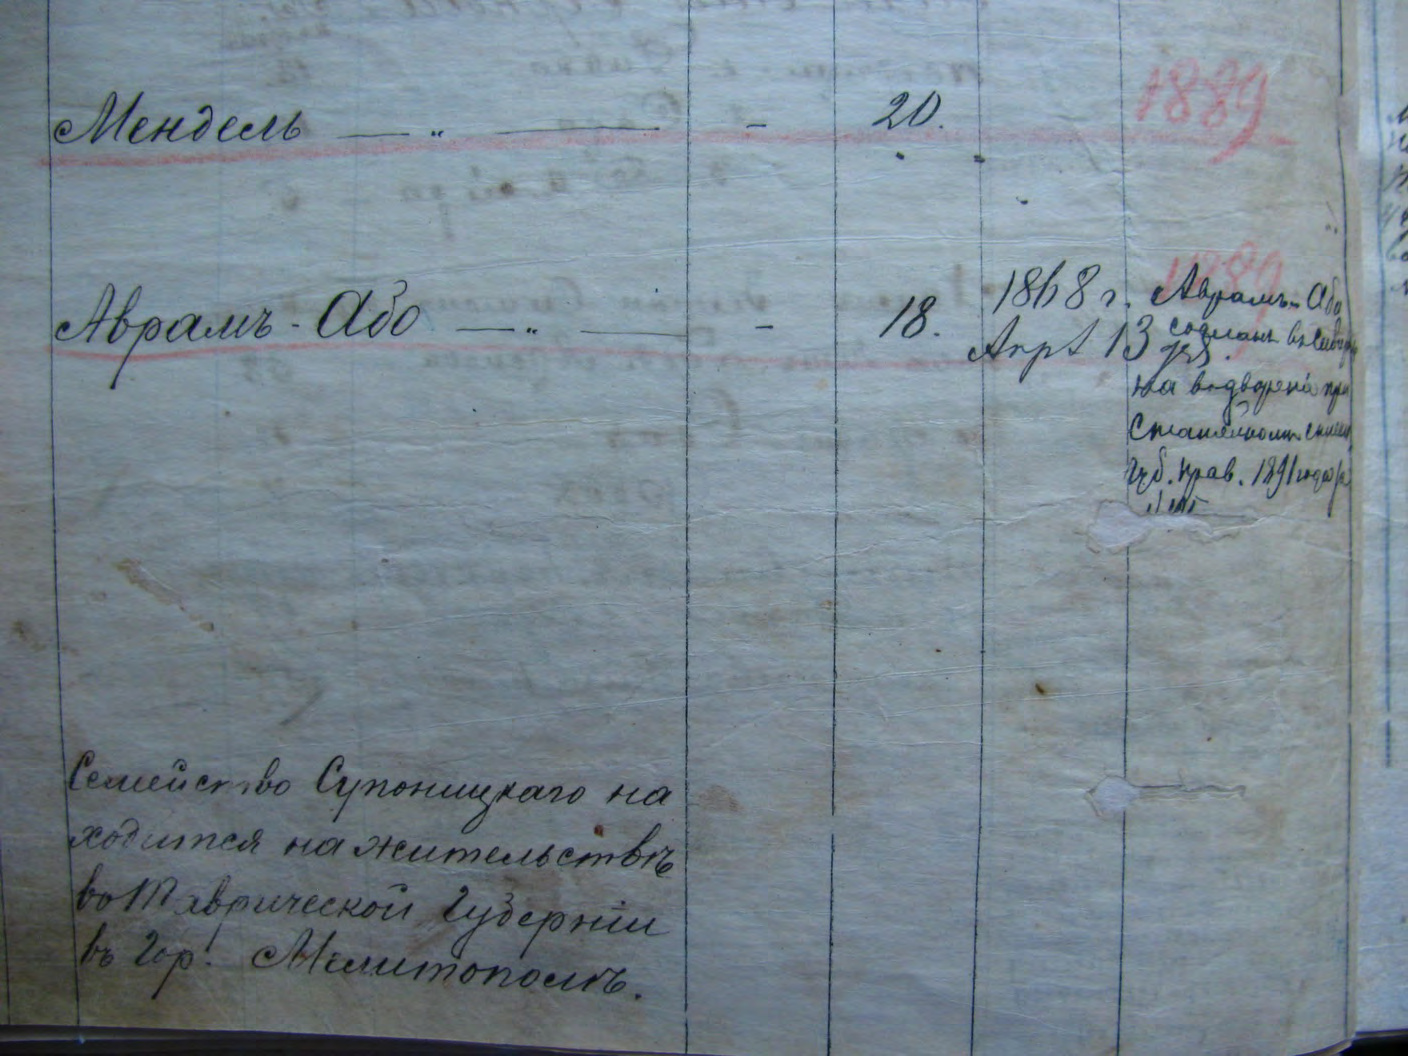 Мендель — „ — - 20. 1889
Аврамъ-Або — „ — - 18. 1868 г. 1889
Апр 13
Аврамъ-Або
сосланъ въ
на водворенiе при
губ. прав. 1891 года
Семейство Супоницкаго на
ходится на жительствѣ
въ Таврической Губернiи
въ Гор. Мелитополѣ.